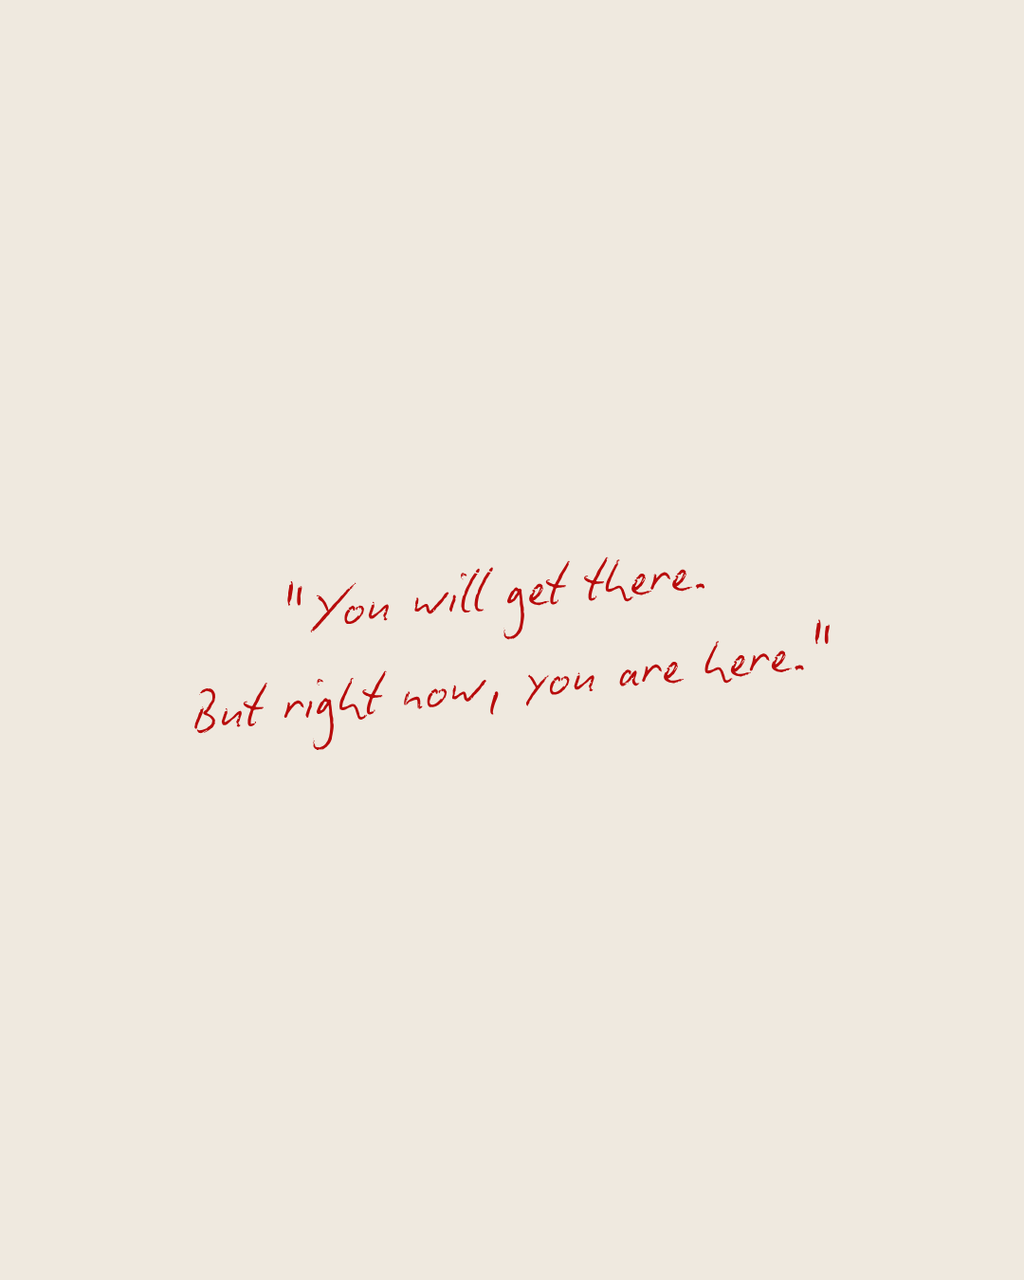 "You will get there.
But right now, you are here."